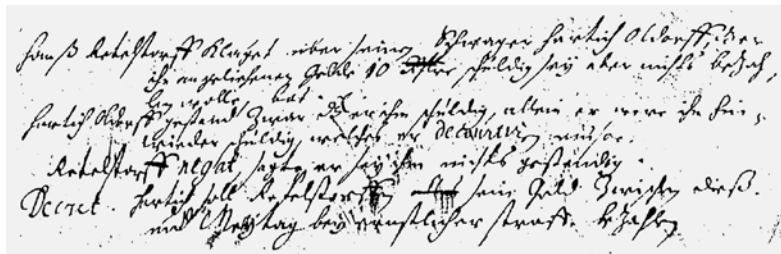 Hanß Retelstorff klaget über seinen Schwager Hartich Oldorff, der
ihm angeliehenen Gelde 10 schuldig sey aber nichts bezah,
len wolle, bat
Hartich Oldorff gestund zwar daß er ihm schuldig, allein er were ihm hin,
wieder schuldig, welches er decourtiren müße.
Retelstorff negat, sagte er sey ihm nichts geständig.
Decret. Hartich soll Retelstorffen sein Geld zwischen dieß.
und Meytag bey ernstlicher straffe bezahlen